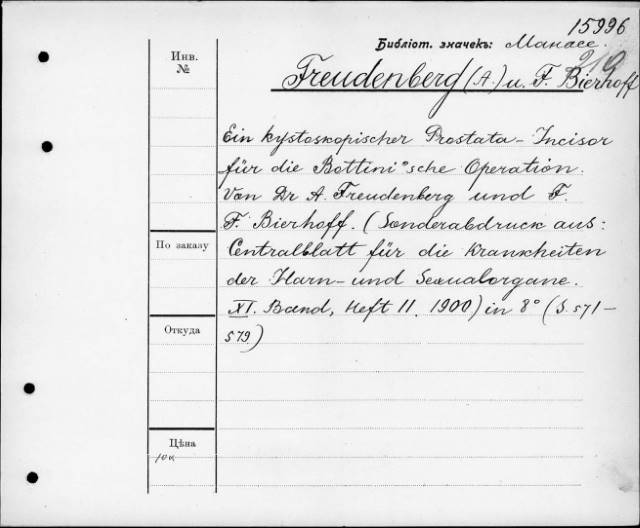 15996
Библіот. значекъ: Манасе.
Инв.
№
Freudenberg (A.) u. F. Bierhoff
Ein kystoskopischer Prostata-Incisor
für die Bottini'sche Operation.
Von Dr A. Freudenberg und F.
F. Bierhoff. (Sonderabdruck aus:
По заказу
Centralblatt für die Krankheiten
der Harn- und Sexualorgane.
XI. Band, Heft 11, 1900) in 8° (S. 571-
Откуда
579)
Цѣна
10к